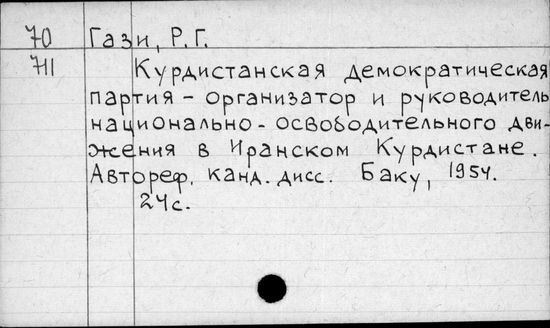 70 Гази, Р.Г.
711 Курдистанская демократическая
партия - организатор и руководитель
национально - освободительного дви-
жения в Иранском Курдистане.
Автореф. канд. дисс. Баку, 1954.
24с.